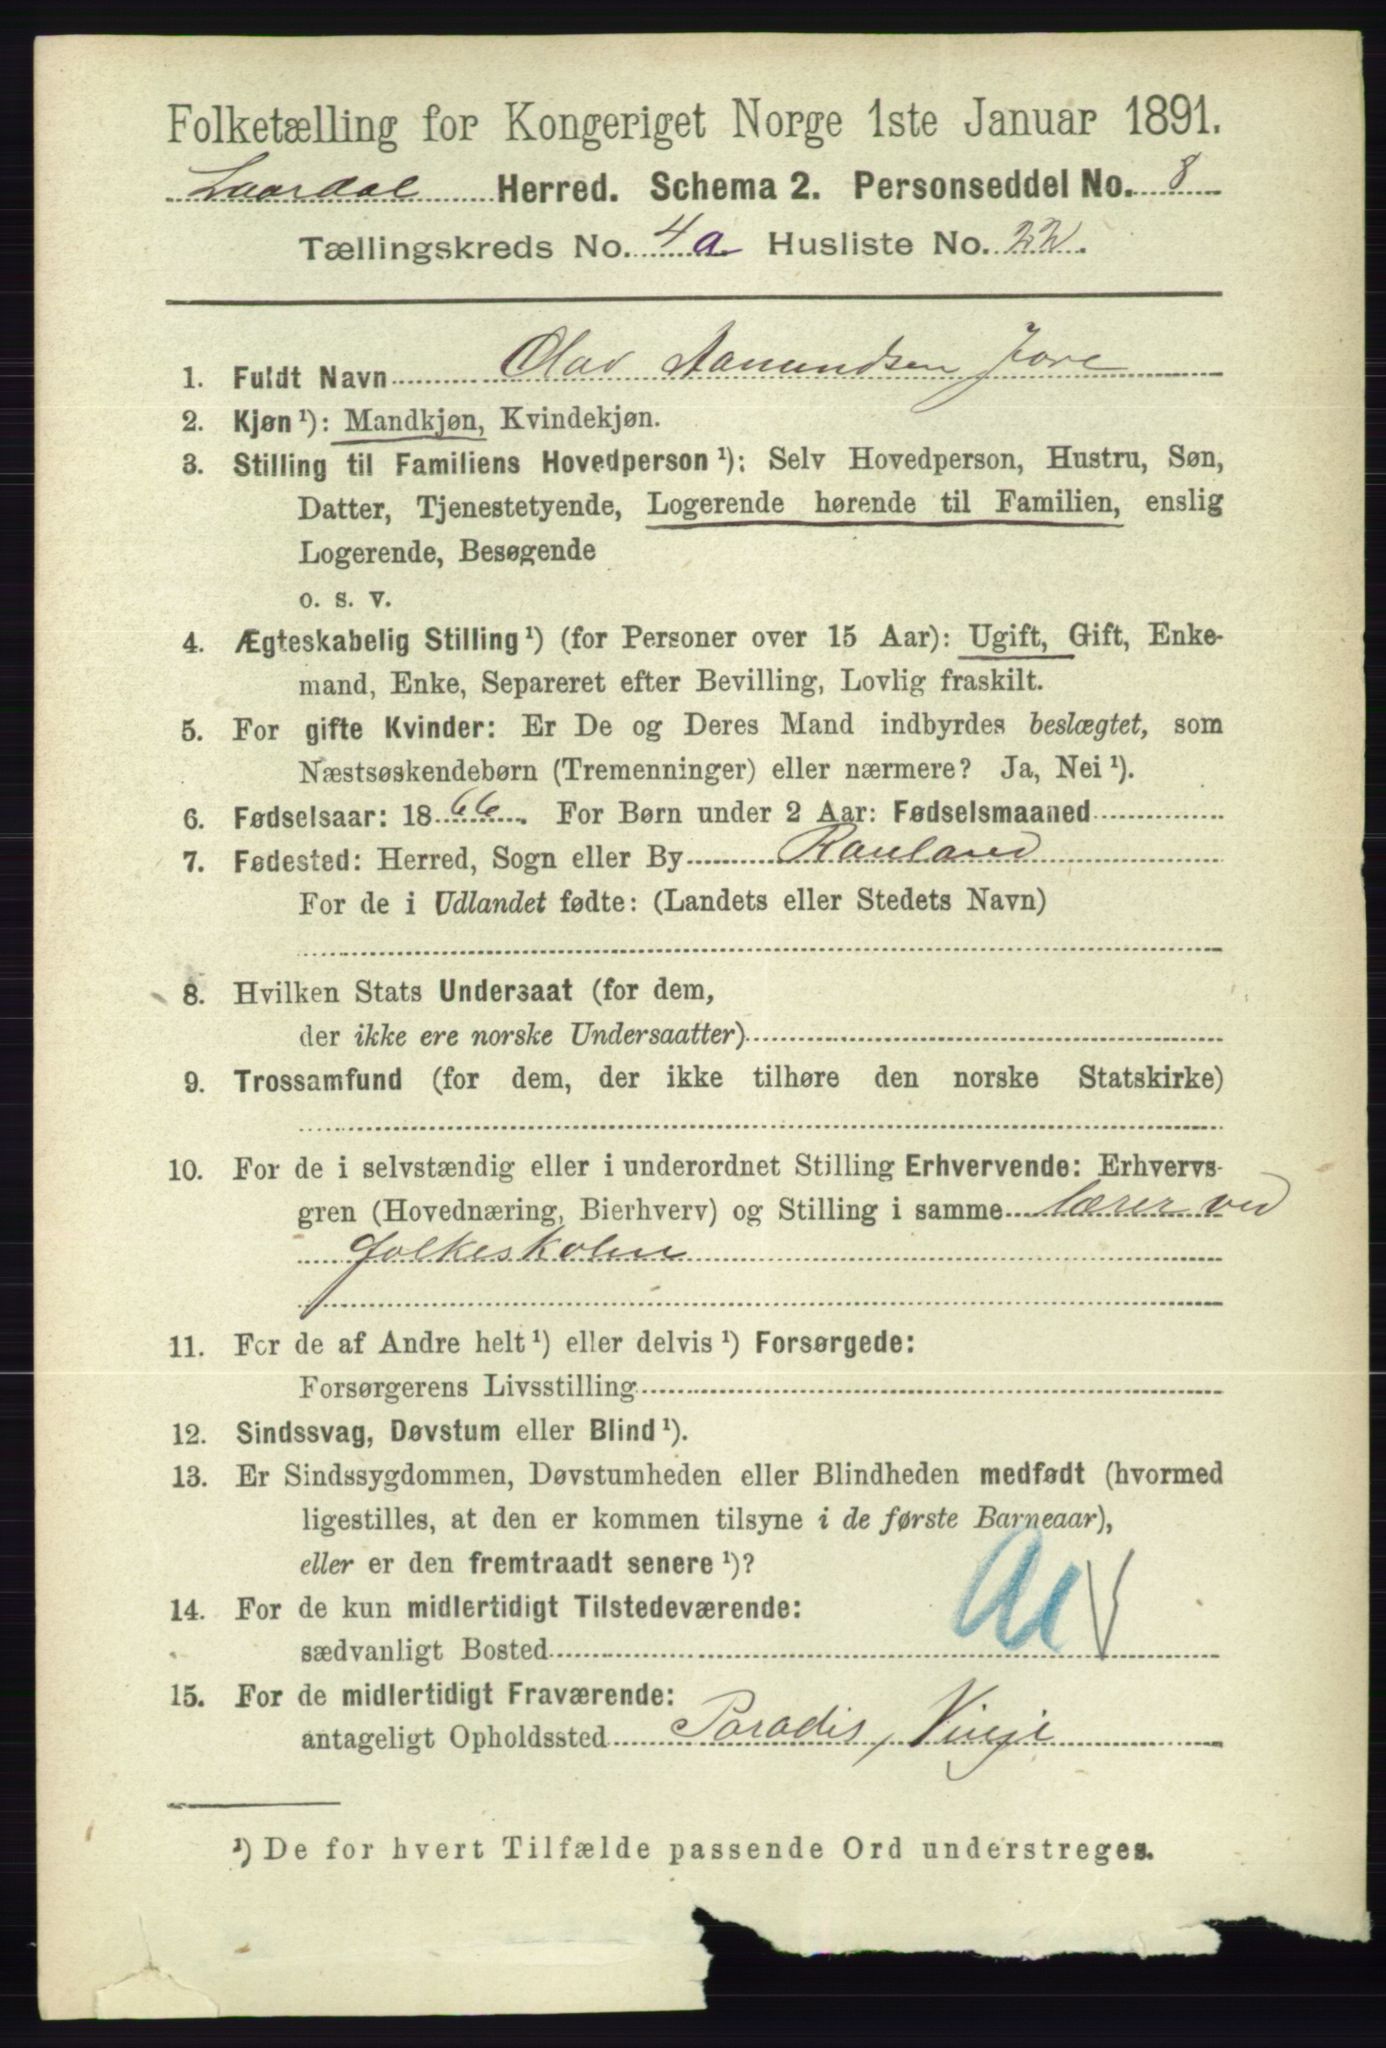 Folketælling for Kongeriget Norge 1ste Januar 1891.
Laardal Herred. Schema 2. Personseddel No. 8
Tællingskreds No. 4a Husliste No. 22.
1. Fuldt Navn Olav Aamundsen Jore
2. Kjøn ¹): Mandkjøn, Kvindekjøn.
3. Stilling til Familiens Hovedperson ¹): Selv Hovedperson, Hustru, Søn,
Datter, Tjenestetyende, Logerende hørende til Familien, enslig
Logerende, Besøgende
o. s. v.
4. Ægteskabelig Stilling ¹) (for Personer over 15 Aar): Ugift, Gift, Enke-
mand, Enke, Separeret efter Bevilling, Lovlig fraskilt.
5. For gifte Kvinder: Er De og Deres Mand indbyrdes beslægtet, som
Næstsøskendebørn (Tremenninger) eller nærmere? Ja, Nei ¹).
6. Fødselsaar: 1866. For Børn under 2 Aar: Fødselsmaaned
7. Fødested: Herred, Sogn eller By Rauland
For de i Udlandet fødte: (Landets eller Stedets Navn)
8. Hvilken Stats Undersaat (for dem,
der ikke ere norske Undersaatter)
9. Trossamfund (for dem, der ikke tilhøre den norske Statskirke)
10. For de i selvstændig eller i underordnet Stilling Erhvervende: Erhvervs-
gren (Hovednæring, Bierhverv) og Stilling i samme lærer ved
folkeskolen
11. For de af Andre helt ¹) eller delvis ¹) Forsørgede:
Forsørgerens Livsstilling
12. Sindssvag, Døvstum eller Blind ¹).
13. Er Sindssygdommen, Døvstumheden eller Blindheden medfødt (hvormed
ligestilles, at den er kommen tilsyne i de første Barneaar),
eller er den fremtraadt senere ¹)?
14. For de kun midlertidigt Tilstedeværende:
sædvanligt Bosted
15. For de midlertidigt Fraværende:
antageligt Opholdssted Paradis, Vinje
¹) De for hvert Tilfælde passende Ord understreges.